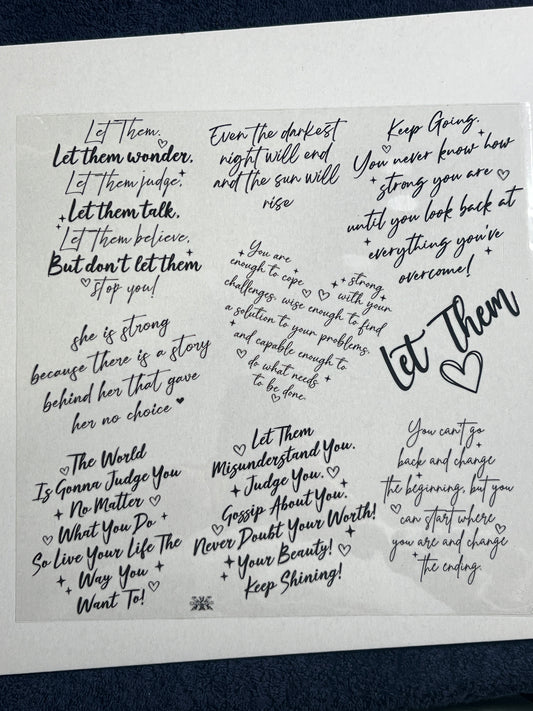 Let Them.
Let them wonder.
Let them judge.
Let them talk.
Let them believe.
But don't let them
stop you!
Even the darkest
night will end
and the sun will
rise
Keep Going.
You never know how
strong you are
until you look back at
everything you've
overcome!
You are strong
enough to cope with your
challenges, wise enough to find
a solution to your problems,
and capable enough to
do what needs
to be done.
Let Them
she is strong
because there is a story
behind her that gave
her no choice
The World
Is Gonna Judge You
No Matter
What You Do
So Live Your Life The
Way You
Want To!
Let Them
Misunderstand You.
Judge You.
Gossip About You.
Never Doubt Your Worth!
Your Beauty!
Keep Shining!
You can't go
back and change
the beginning, but you
can start where
you are and change
the ending.